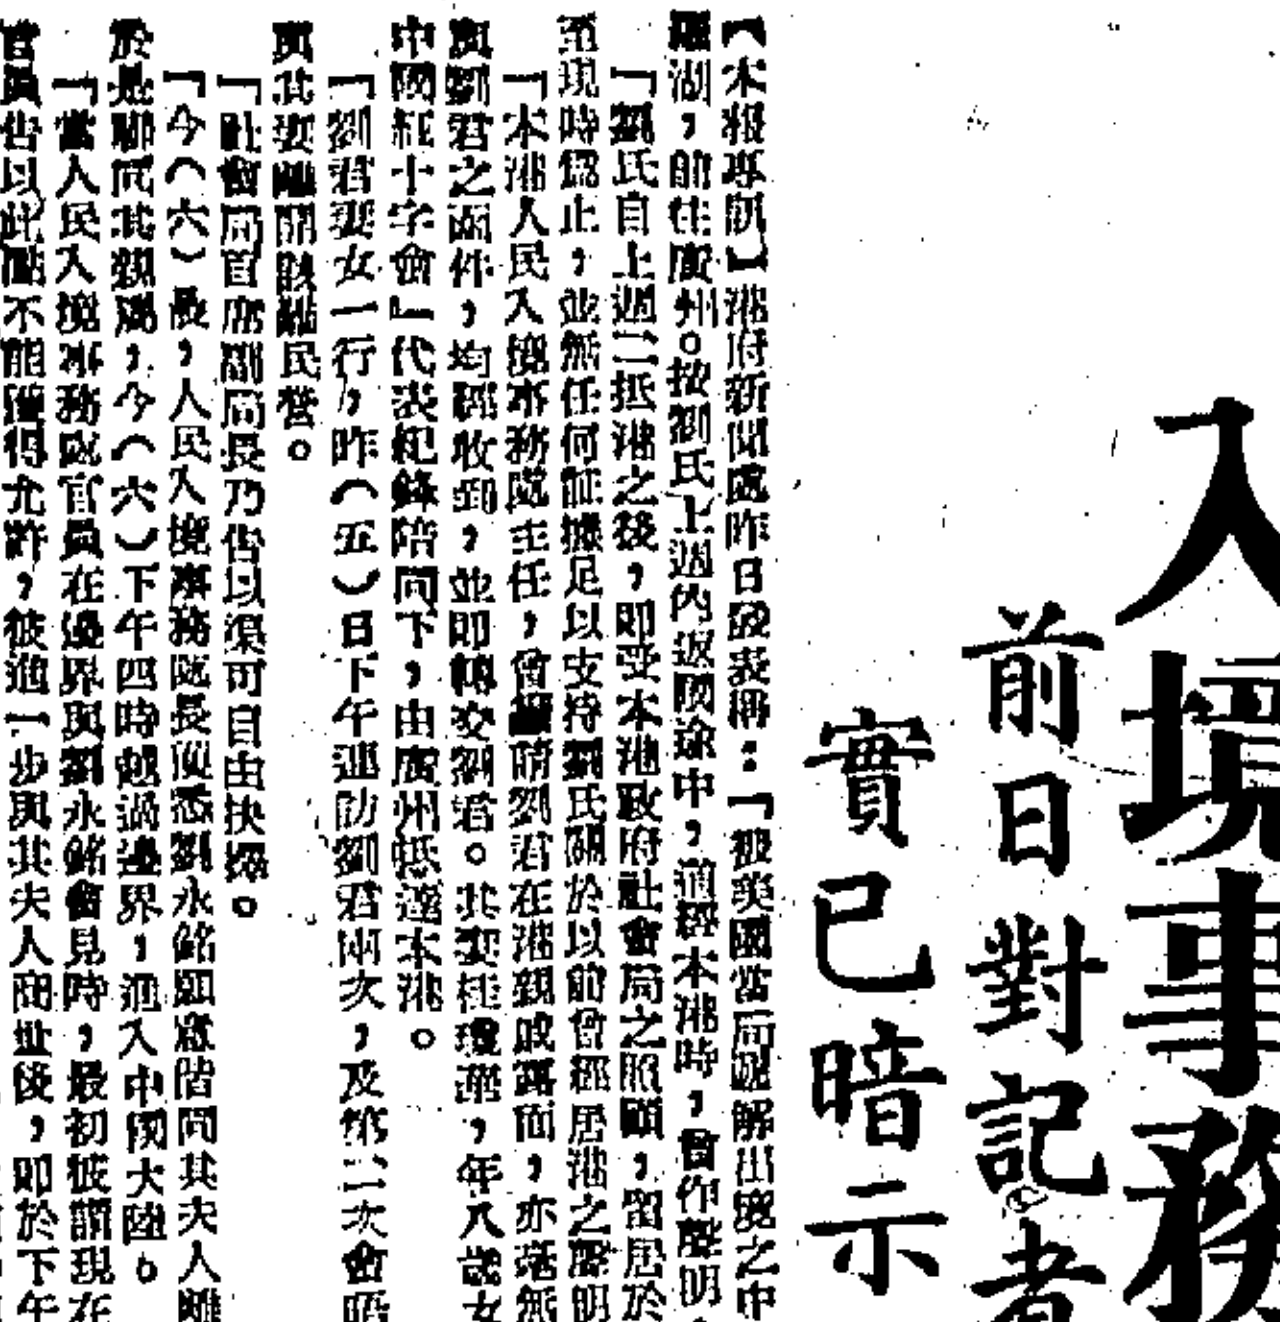 入境事務
前日對記者
實已暗示
【本報專訊】港府新聞處昨日發表稱：「被美國當局遞解出境之中
羅湖，前往廣州。按劉氏上週內返國途中，道經本港時，曾作聲明，
「劉氏自上週二抵港之後，即受本港政府社會局之照顧，留居於
至現時為止，並無任何証據足以支持劉氏關於以前曾經居港之聲明
「本港人民入境事務處主任，曾請劉君在港親戚面，亦毫無
與劉君之函件，均經收到，並即轉交劉君。其妻桂瓊蓮，年八歲女
中國紅十字會』代表紀鋒陪同下，由廣州抵達本港。
「劉君妻女一行，昨（五）日下午連訪劉君兩次，及第二次會晤
與其妻離開該難民營。
「社會局首席副局長乃告以渠可自由抉擇。
「今（六）晨，人民入境事務處長更悉劉永銘願意偕同其夫人離
於是聯同其親屬，今（六）下午四時越過邊界，進入中國大陸。
「當人民入境事務處官員在邊界與劉永銘會見時，最初彼謂現在
官員告以此點不能獲得允許，彼進一步與其夫人商量後，即於下午